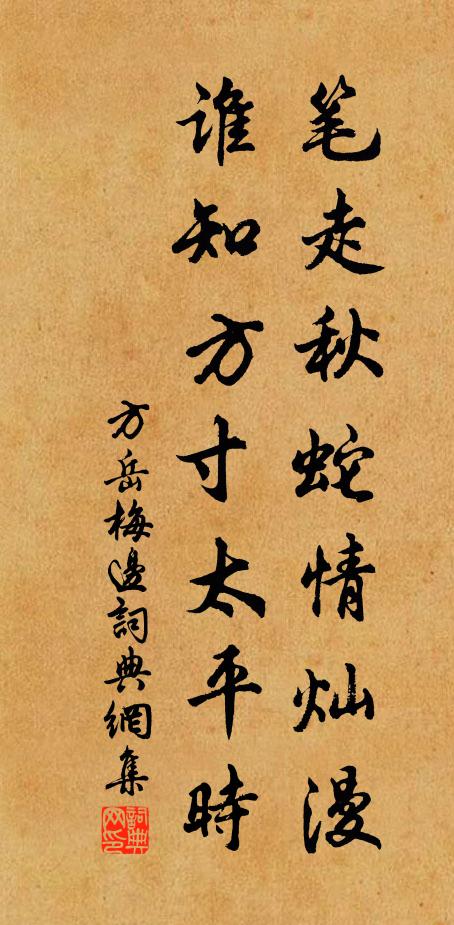 笔走秋蛇情灿漫
谁知方寸太平時
方岳梅邊詞典網集
詞典网印